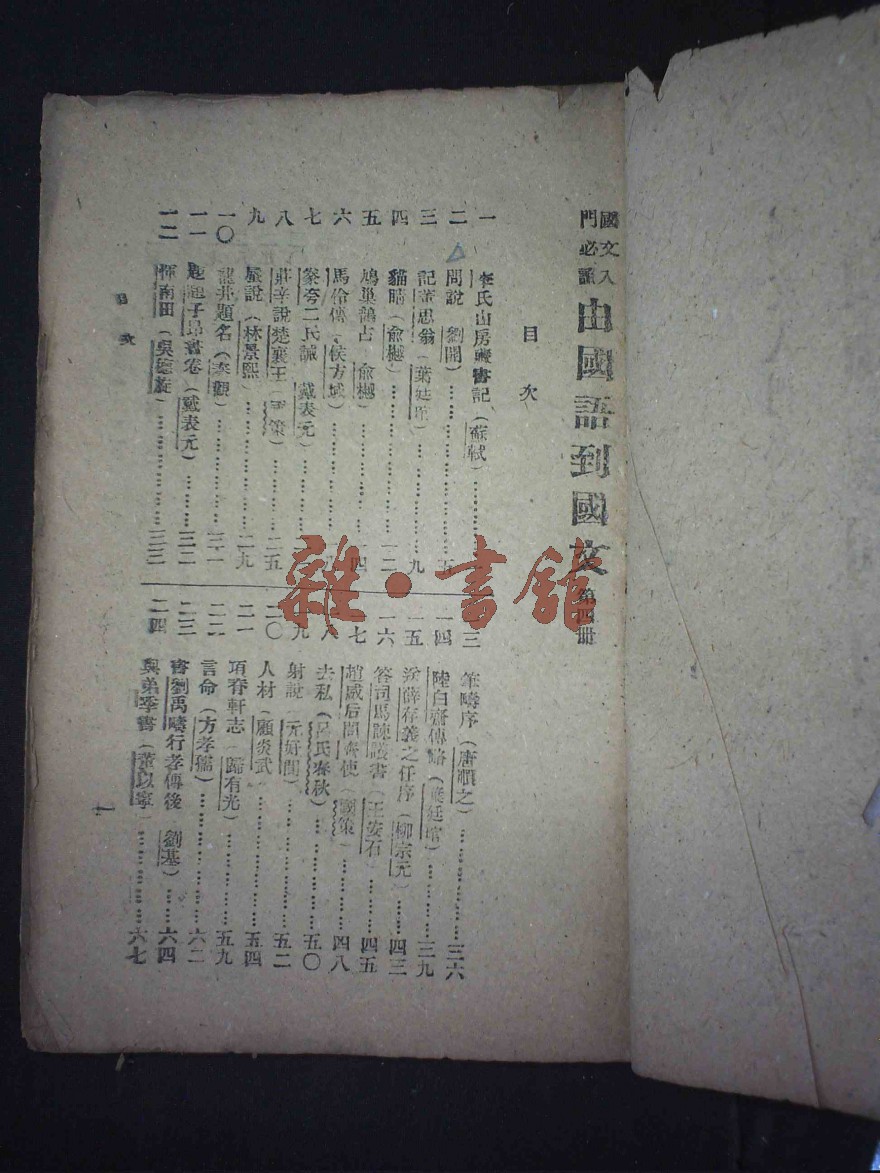 國文入門必讀 由國語到國文 第四册
目次
一 李氏山房藏書記(蘇軾)
二 問說(劉開)……五
三 記董思翁(葉廷琯)……九
四 貓睛(俞樾)……一二
五 鳩巢鵲占(俞樾)……一四
六 馬伶傳(侯方域)
七 豢夸二氏誡(戴表元)
八 莊辛說楚襄王(國策)……二五
九 蜃說(林景熙)……二九
一〇 龍井題名(秦觀)……三一
一一 題趙子昂書卷(戴表元)……三二
一二 惲南田(吳德旋)……三三
一三 筆疇序(唐順之)……三六
一四 陸白齋傳略(葉廷琯)……三九
一五 送薛存義之任序(柳宗元)……四三
一六 答司馬諫議書(王安石)……四五
一七 趙威后問齊使(國策)……四八
一八 去私(呂氏春秋)……五〇
一九 射說(元好問)……五二
二〇 人材(顧炎武)……五四
二一 項脊軒志(歸有光)……五九
二二 言命(方孝孺)……六二
二三 書劉禹疇行孝傳後(劉基)……六四
二四 與弟季書(董以寧)……六七
目次
一
雜·書館